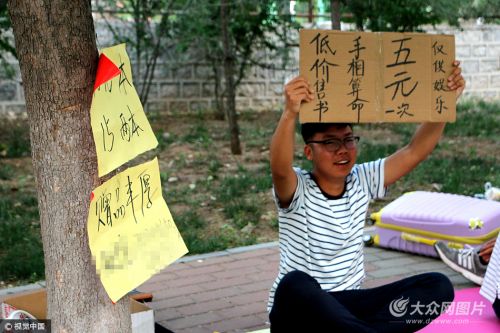 低价售书
手相算命
五元一次
仅供娱乐
本
15 两本
赠品丰厚
©视觉中国
大众网图片